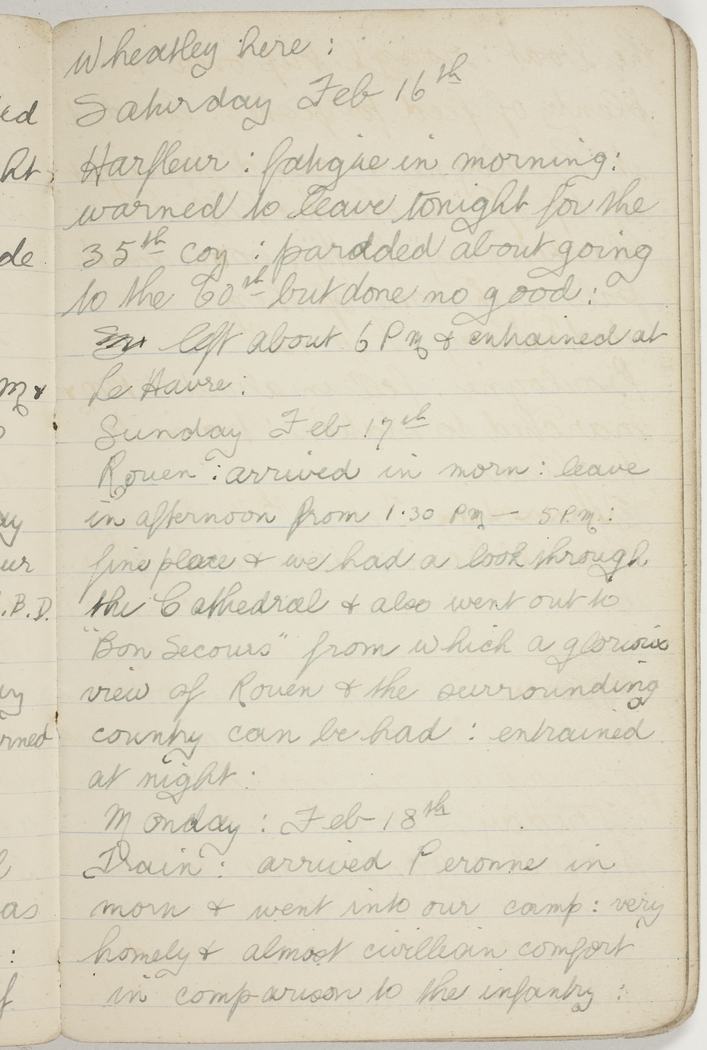 Wheatley here :
Saturday Feb 16th
Harfleur : fatigue in morning :
warned to leave tonight for the
35th coy : paradded about going
to the 60th but done no good :
left about 6 Pm & entrained at
Le Havre :
Sunday Feb 17th
Rouen : arrived in morn : leave
in afternoon from 1.30 Pm — 5 P.m :
fine place & we had a look through
the Cathedral & also went out to
"Bon Secours" from which a glorious
view of Rouen & the surrounding
country can be had : entrained
at night :
Monday : Feb 18th
Train : arrived Peronne in
morn & went into our camp : very
homely & almost civillian comfort
in comparison to the infantry :